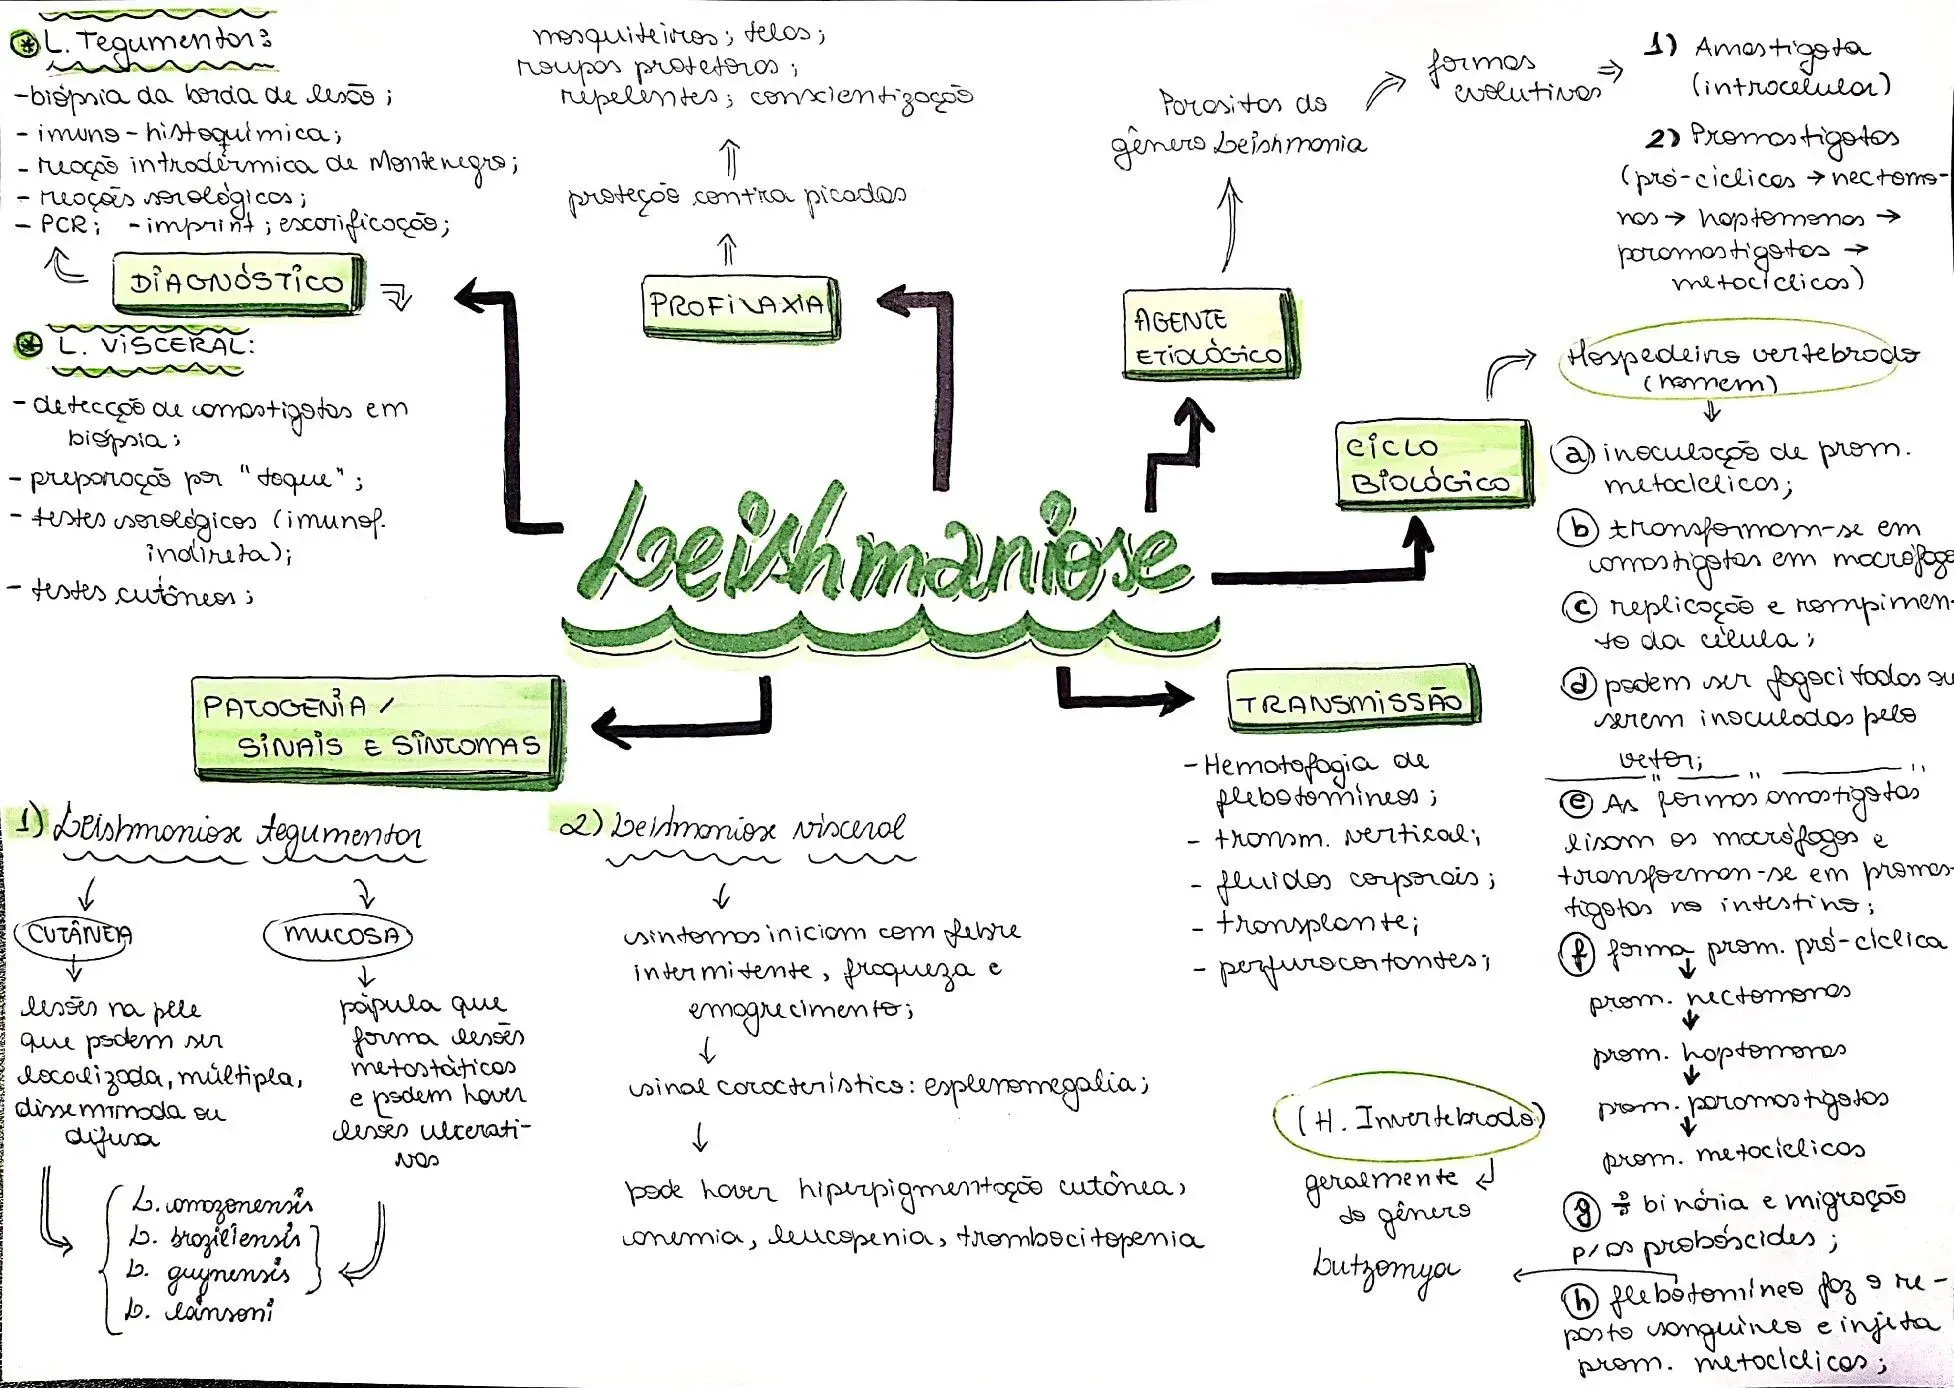 L. Tegumentar:
-biópsia da borda de lesão;
- imuno-histoquímica;
- reação intradérmica de Montenegro;
- reaçõs sorológicas;
- PCR; -imprint; escarificação;
DIAGNÓSTICO
L. VISCERAL:
- detecção de amastigotas em
biópsia;
- preparação por "toque";
- testes sorológicos (imunof.
indireta);
- testes cutâneos;
mosquiteiros; telas;
roupas protetoras;
repelentes; conscientização
proteção contra picadas
PROFILAXIA
Parasitas do
gênero Leishmania
AGENTE
ETIOLÓGICO
formas
evolutivas
1) Amastigota
(intracelular)
2) Promastigotas
(pró-cíclicas → nectomo-
nas → haptomonas →
paramastigotas →
metacíclicas)
Leishmaniose
CICLO
BIOLÓGICO
Hospedeiro vertebrado
(homem)
a) inoculação de prom.
metacíclicas;
b) transformam-se em
amastigotas em macrófago
c) replicação e rompimen-
to da célula;
d) podem ser fagocitados ou
serem inoculados pelo
vetor;
e) As formas amastigotas
lisam os macrófagos e
transformam-se em promas-
tigotas no intestino;
f) forma prom. pró-cíclica
prom. nectomonas
prom. haptomonas
prom. paramastigotas
prom. metacíclicas
g) ÷ binária e migração
p/ as probóscides;
h) flebotomíneo faz o re-
pasto sanguíneo e injeta
prom. metacíclicas;
(H. Invertebrado)
geralmente
do gênero
Lutzomya
TRANSMISSÃO
- Hematofagia de
flebotomíneos;
- transm. vertical;
- fluidos corporais;
- transplante;
- perfurocortantes;
PATOGENIA /
SINAIS E SINTOMAS
1) Leishmaniose tegumentar
CUTÂNEA
lesões na pele
que podem ser
localizada, múltipla,
disseminada ou
difusa
MUCOSA
pápula que
forma lesões
metastáticas
e podem haver
lesões ulcerati-
vas
L. amazonensis
L. braziliensis
L. guynensis
L. lainsoni
2) Leishmaniose visceral
sintomas iniciam com febre
intermitente, fraqueza e
emagrecimento;
sinal característico: esplenomegalia;
pode haver hiperpigmentação cutânea,
anemia, leucopenia, trombocitopenia